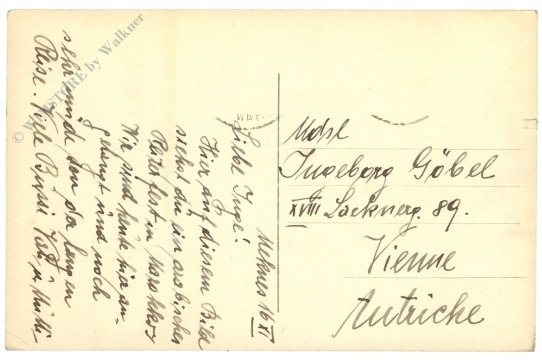 Meknes 16 XI
Liebe Inge!
Hier auf diesem Bild
siehst du ein arabisches
Reiterfest in Marokko
Wir sind heute hier an-
gelangt und noch
sehr müde von der langen
Reise. Viele Bussi Vati u Mutti
Mdse
Ingeborg Göbel
XVIII Lacknerg. 89.
Vienne
Autriche
© WALSTORE by Walkner